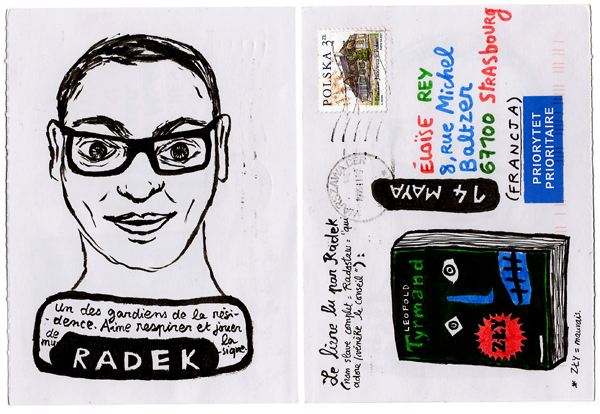 Un des gardiens de la rési-
dence. Aime respirer et jouer
de la
mu-sique.
RADEK
POLSKA 3 zł
ÉLOÏSE REY
8, rue Michel
Baltzer
67100 STRASBOURG
(FRANCJA)
PRIORYTET
PRIORITAIRE
14 MAYA
Le livre lu par Radek
(nom slave complet = Radosław = "qui
adore/vénère le conseil"):
LEOPOLD
Tyrmand
ZŁY
* ZŁY = mauvais.